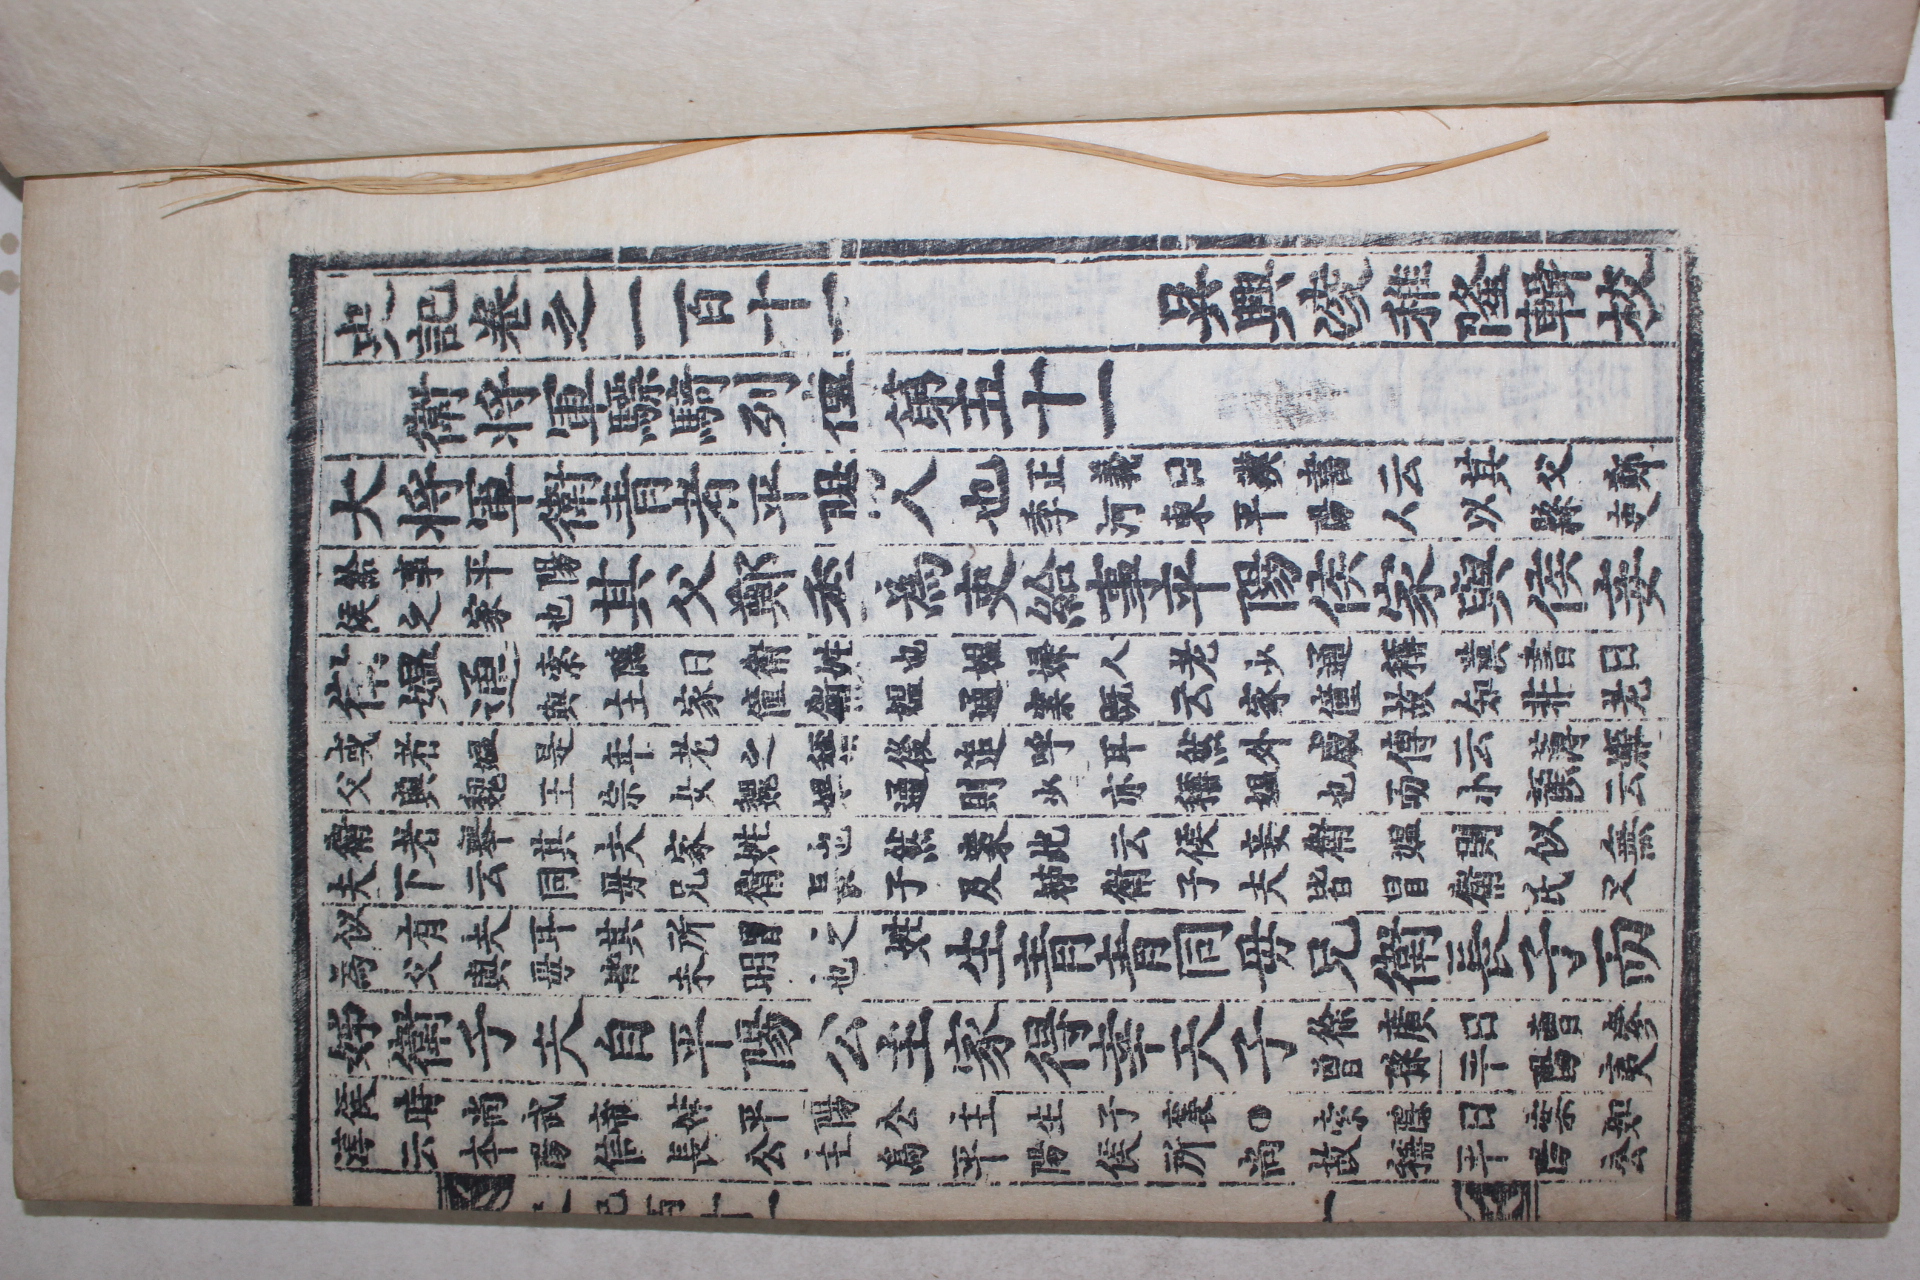 史記卷之一百十一　吳興凌稚隆輯校
衛將軍驃騎列傳第五十一
大將軍衛青者平陽人也正義曰漢書云其父鄭
季河東平陽人以縣吏
給事平陽
侯之家也其父鄭季為吏給事平陽侯家與侯妾
衛媼通索隱曰衛姓也媼婦人老少通稱漢書曰
與主家僮衛媼通案既云家僮故知非老
或者媼是年老之稱後追呼耳然外戚傳云薄姬
父與魏王宗女魏媼通則少亦稱媼也而小顏云
衛者舉其夫家姓也然案此云侯妾衛媼則似無
夫下云同毋兄衛長子及姊衛子夫皆冒衛氏又
似有夫耳其所冒之姓
為父與毋皆未明也生青青同毋兄衛長子而
姊衛子夫自平陽公主家得幸天子徐廣曰曹參
曾孫平陽夷
侯時尚武帝姊平陽公主生子襄○索隱曰案如
淳云本陽信長公主為平陽侯所尚故稱平陽公